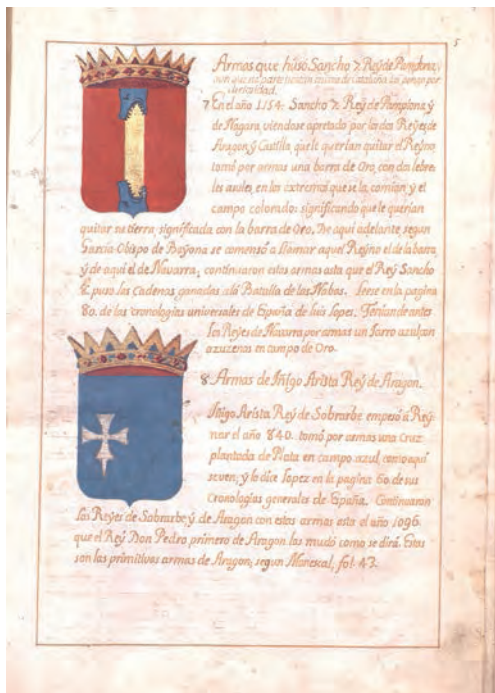 5
Armas que húsó Sancho 7. Rey de Pamplona,
aun que no partenescan
por
curiosidad.
7 En el año 1154. Sancho 7. Rey de Pamplona, y
de Nagara, viendose apretado por los dos Reyes de
Aragon, y Castilla, que le querian quitar el Reyno
tomó por armas una barra de Oro, con dos lebre-
les asules, en los extremos que se la comian, y el
campo colorado: significando que le querian
quitar su tierra, significada con la barra de Oro. De aqui adelante, segun
Garcia Obispo de Bayona se comensó a llamar aquel Reyno el de la barra,
y de aqui el de Navarra, continuaron estas armas asta que el Rey Sancho
8. puso las Cadenas ganadas a la Batalla de las Nabas. Leese en la pagina
80. de las cronologias universales de España de luis lopes. Tenian de antes
los Reyes de Navarra por armas un Jarro azul con
azuzenas en campo de Oro.
8. Armas de Iñigo Arista Rey de Aragon.
Iñigo Arista Rey de Sobrarbe empesó a Rey-
nar el año 840. tomó por armas una Cruz
plantada de Plata en campo azul, como aqui
se ven; y lo dice Lopez en la pagina 60 de sus
Cronologias generales de España. Continuaron
los Reyes de Sobrarbe y de Aragon con estas armas asta el año 1096.
que el Rey Don Pedro primero de Aragon las mudó como se dirá. Estas
son las primitivas armas de Aragon; segun fol. 43.